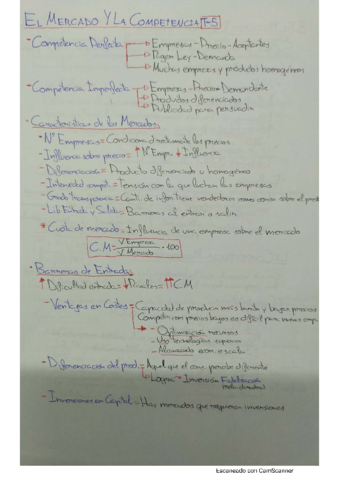 EL MERCADO Y LA COMPETENCIA T-5
- Competencia Perfecta → Empresas - Precio - Aceptantes
→ Rigen Ley - Demanda
→ Muchas empresas y productos homogéneos
- Competencia Imperfecta → Empresas - Precio - Demandante
→ Productos diferenciados
→ Publicidad para persuadir
- Características de los Mercados:
- Nº Empresas = Condiciona directamente los precios
- Influencia sobre precios = ↑ Nº Emp. ↓ Influencia
- Diferenciación = Producto diferenciado u homogéneo
- Intensidad compet. = Tensión con la que luchan las empresas
- Grado Transparencia = Cant. de infor. tiene vendedor como consu. sobre el prod
- Lib. Entrada y Salida = Barreras al entrar o salir
* Cuota de mercado = Influencia de una empresa sobre el mercado
C.M = V Empresa / V Mercado · 100
- Barreras de Entrada:
↑ Dificultad entrada = ↓ Rivales = ↑↑ CM
- Ventajas en Costes = Capacidad de producir más barato y bajar precios
Competir con precios bajos es difícil para nuevas emp.
→ - Optimización recursos
- Uso tecnologías superior
- Alcanzando econ. escala
- Diferenciación del prod. = Aquel que el cons. percibe diferente
→ Logra → Inversión Publicitaria
- Inversiones en Capital = Hay mercados que requieren inversiones
Escaneado con CamScanner